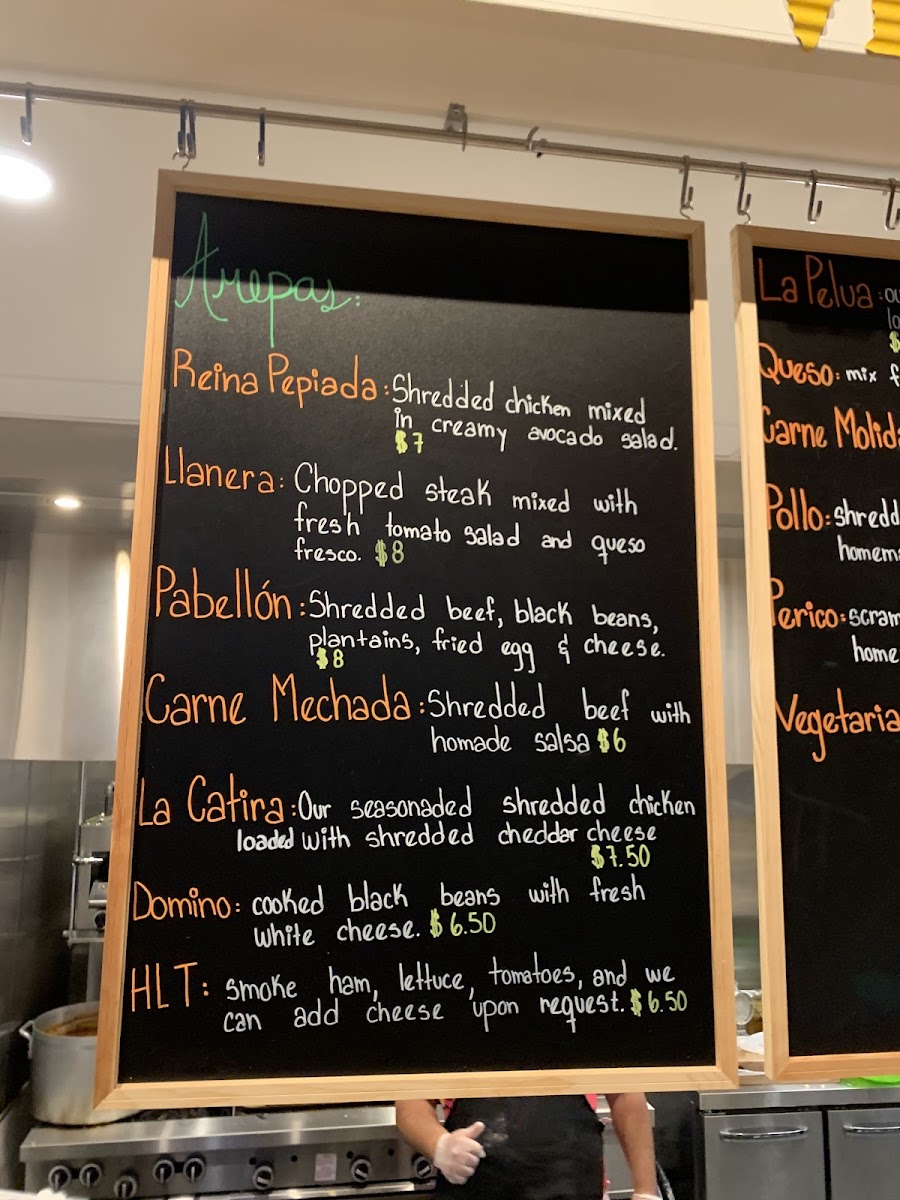 Arepas:
Reina Pepiada: Shredded chicken mixed
in creamy avocado salad.
$7
Llanera: Chopped steak mixed with
fresh tomato salad and queso
fresco. $8
Pabellón: Shredded beef, black beans,
plantains, fried egg & cheese.
$8
Carne Mechada: Shredded beef with
homade salsa $6
La Catira: Our seasonaded shredded chicken
loaded with shredded cheddar cheese
$7.50
Domino: cooked black beans with fresh
white cheese. $6.50
HLT: smoke ham, lettuce, tomatoes, and we
can add cheese upon request. $6.50
La Pelua: ou
lo
$
Queso: mix f
Carne Molida
Pollo: shredd
homema
Perico: scram
home
Vegetaria